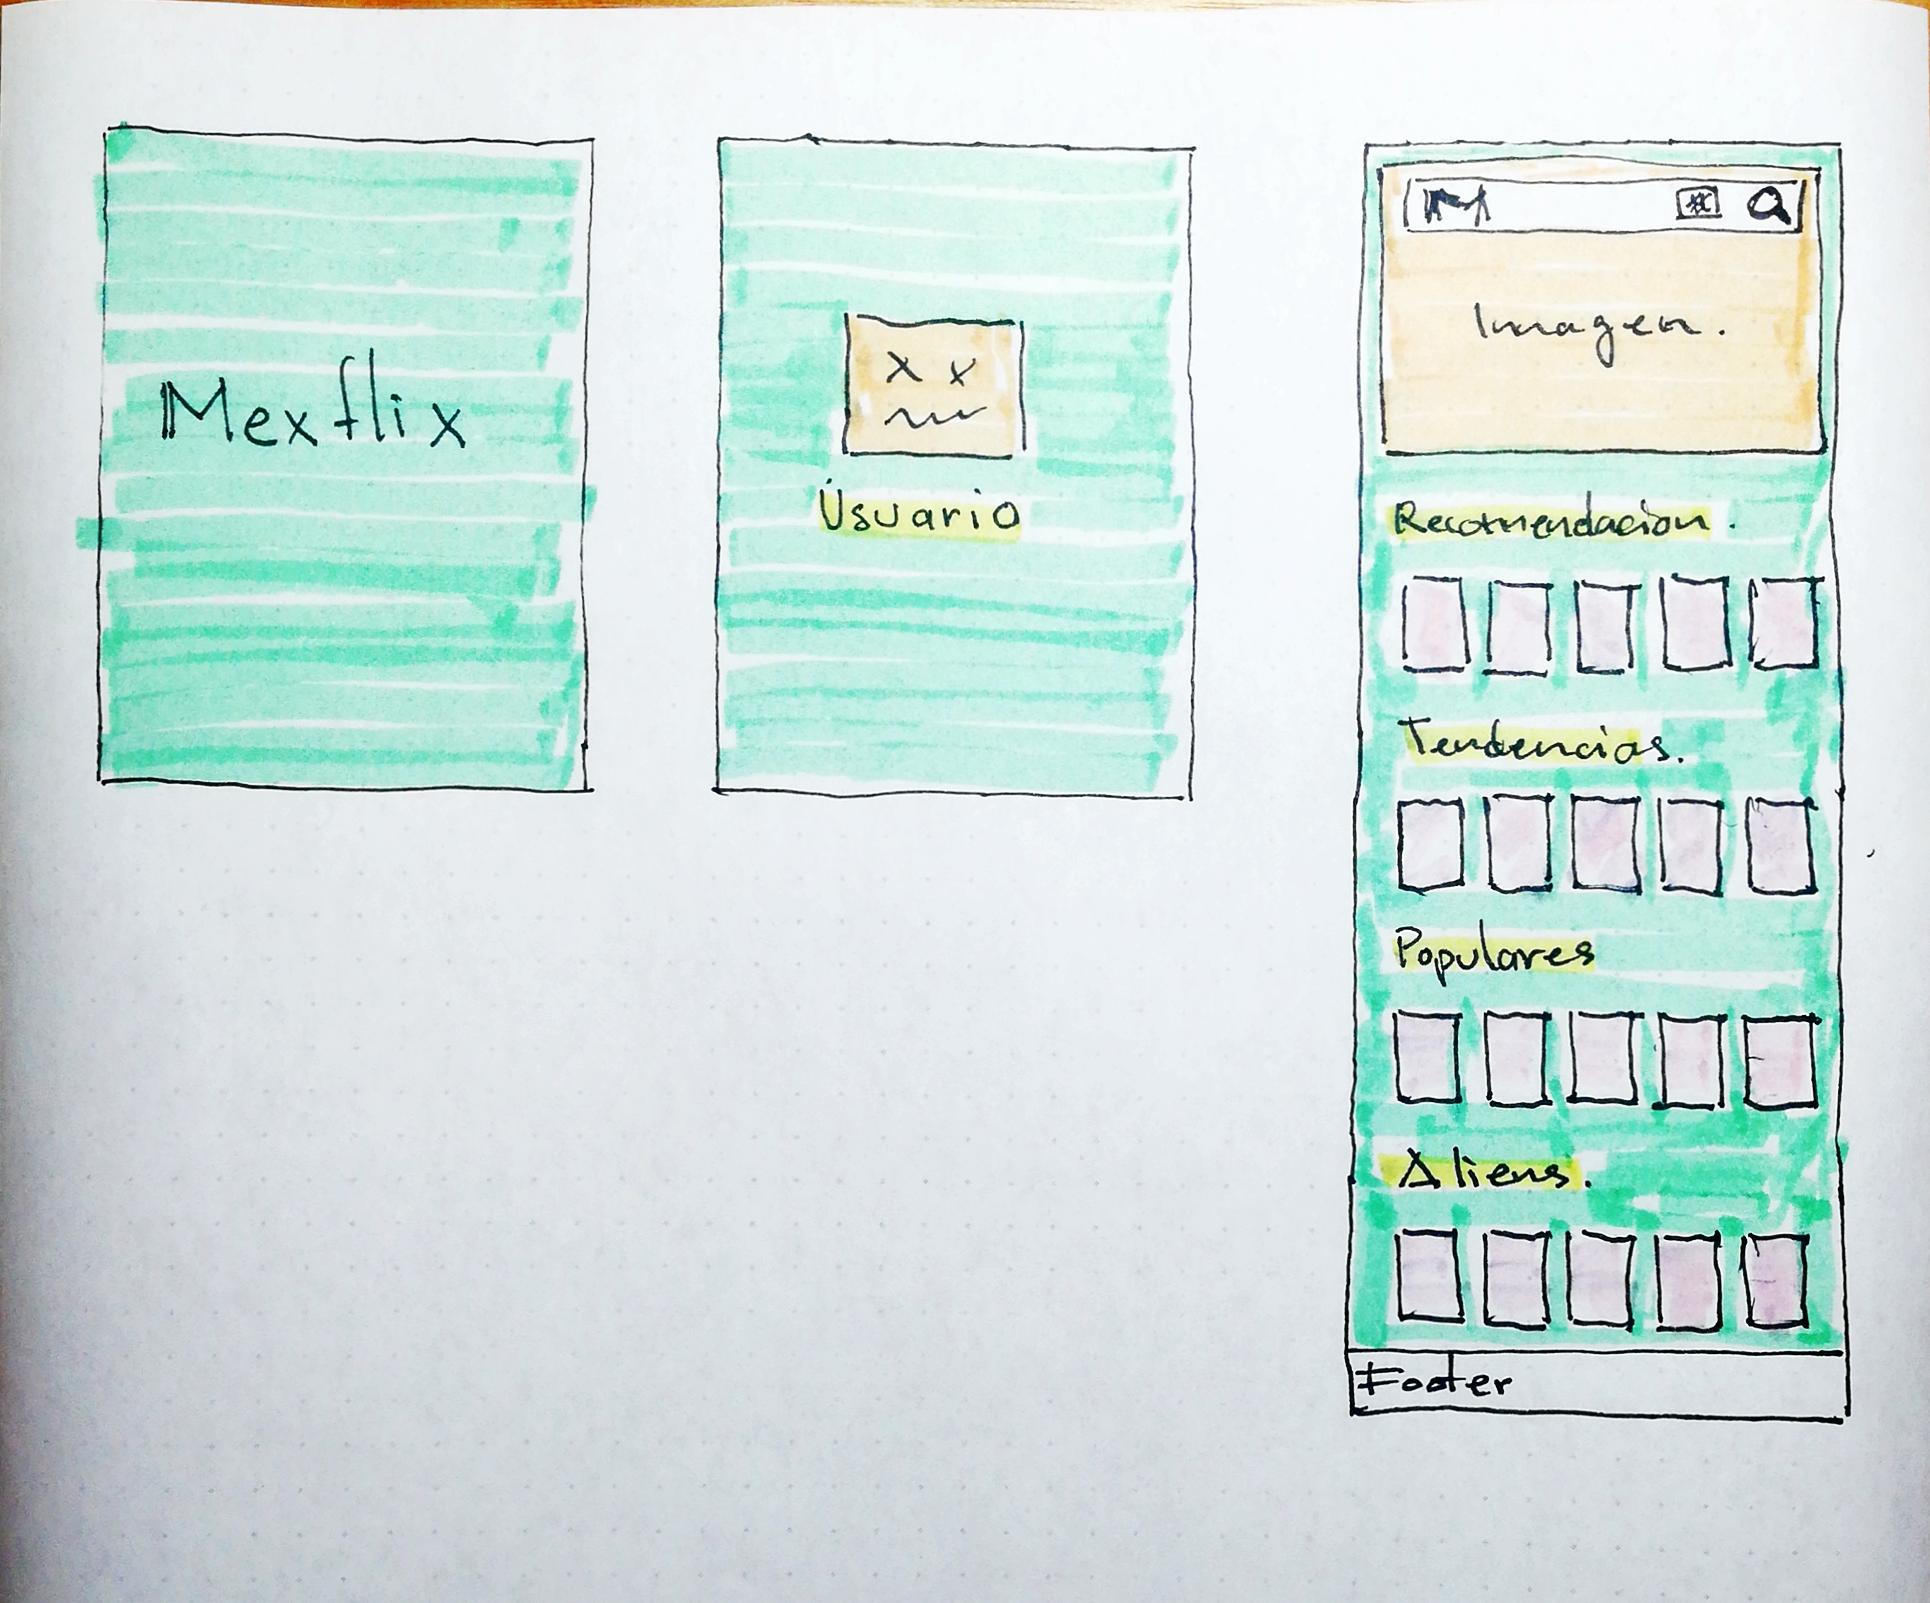 Mexflix
Usuario
Imagen.
Recomendacion.
Tendencias.
Populares
Aliens.
Footer